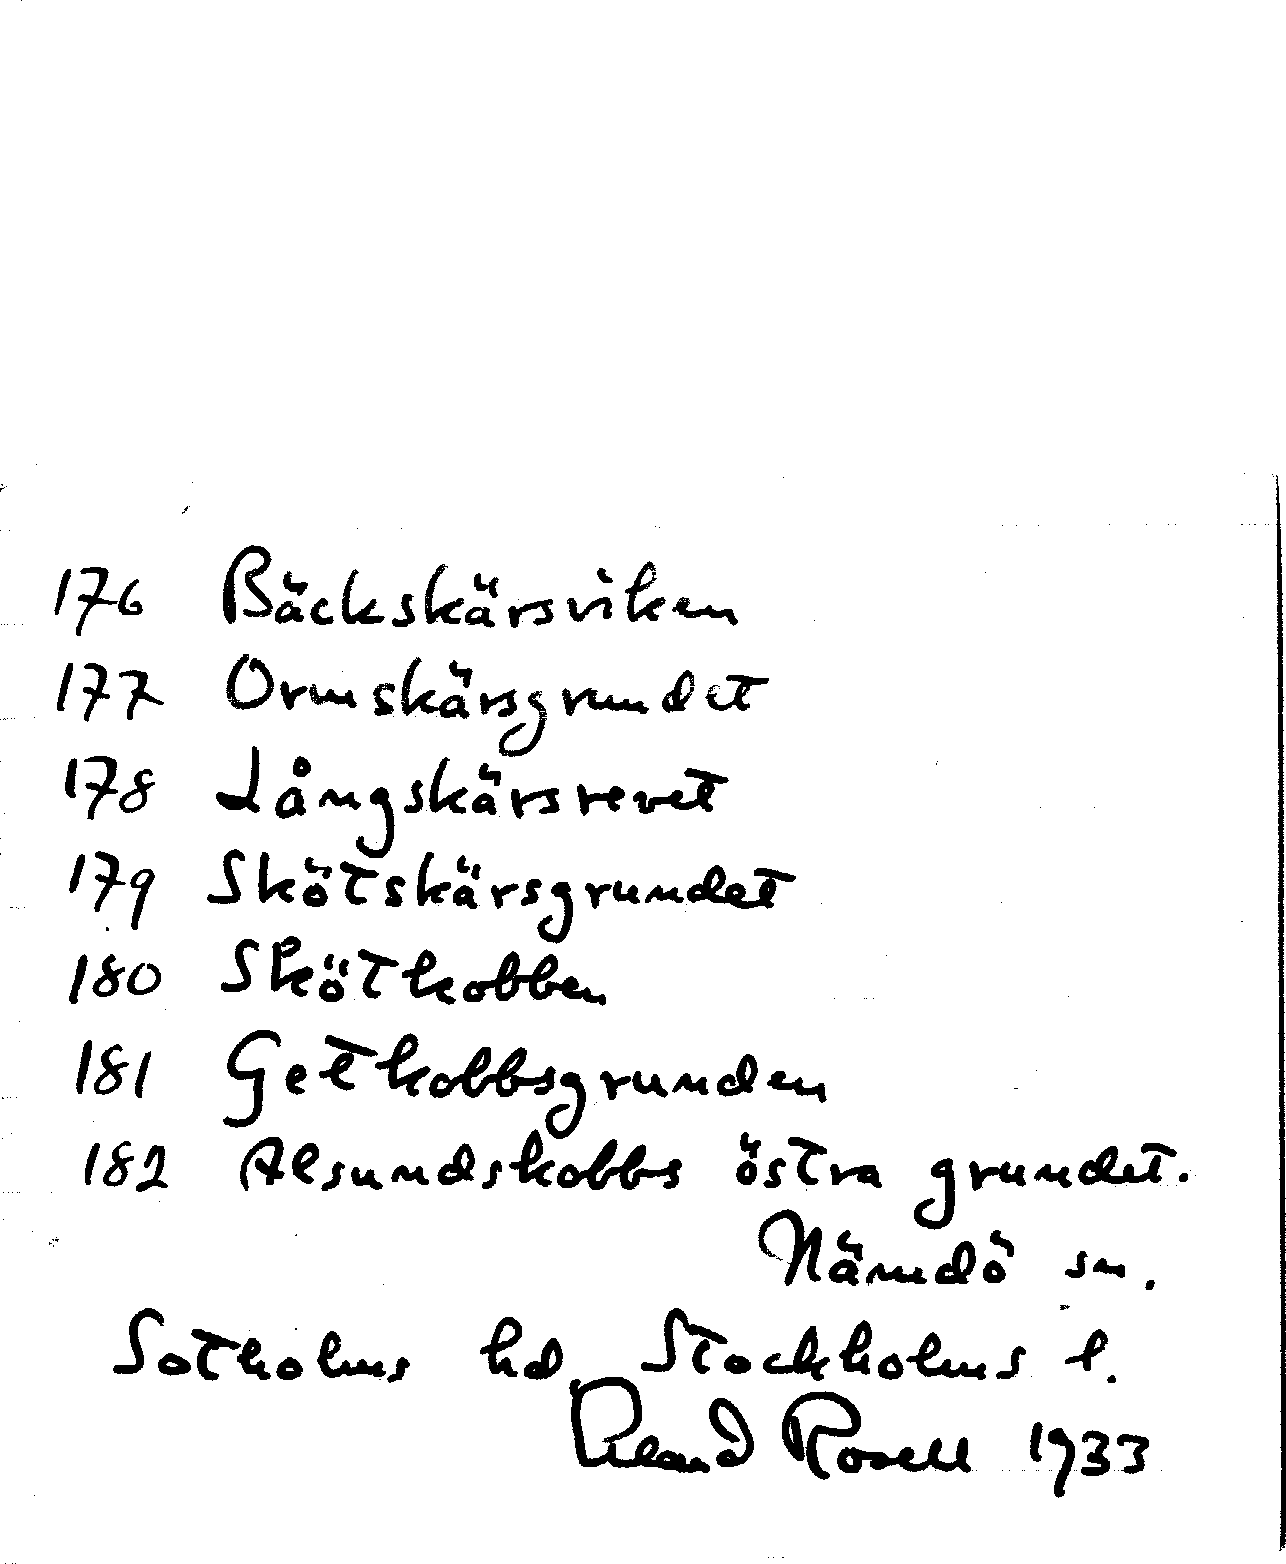 176 Bäckskärsviken
177 Ormskärsgrundet
178 Långskärsrevet
179 Skötskärsgrundet
180 Skötkobben
181 Getkobbsgrunden
182 Alsundskobbs östra grundet.
Nämdö sn.
Sotholms hd Stockholms l.
Rosell 1933